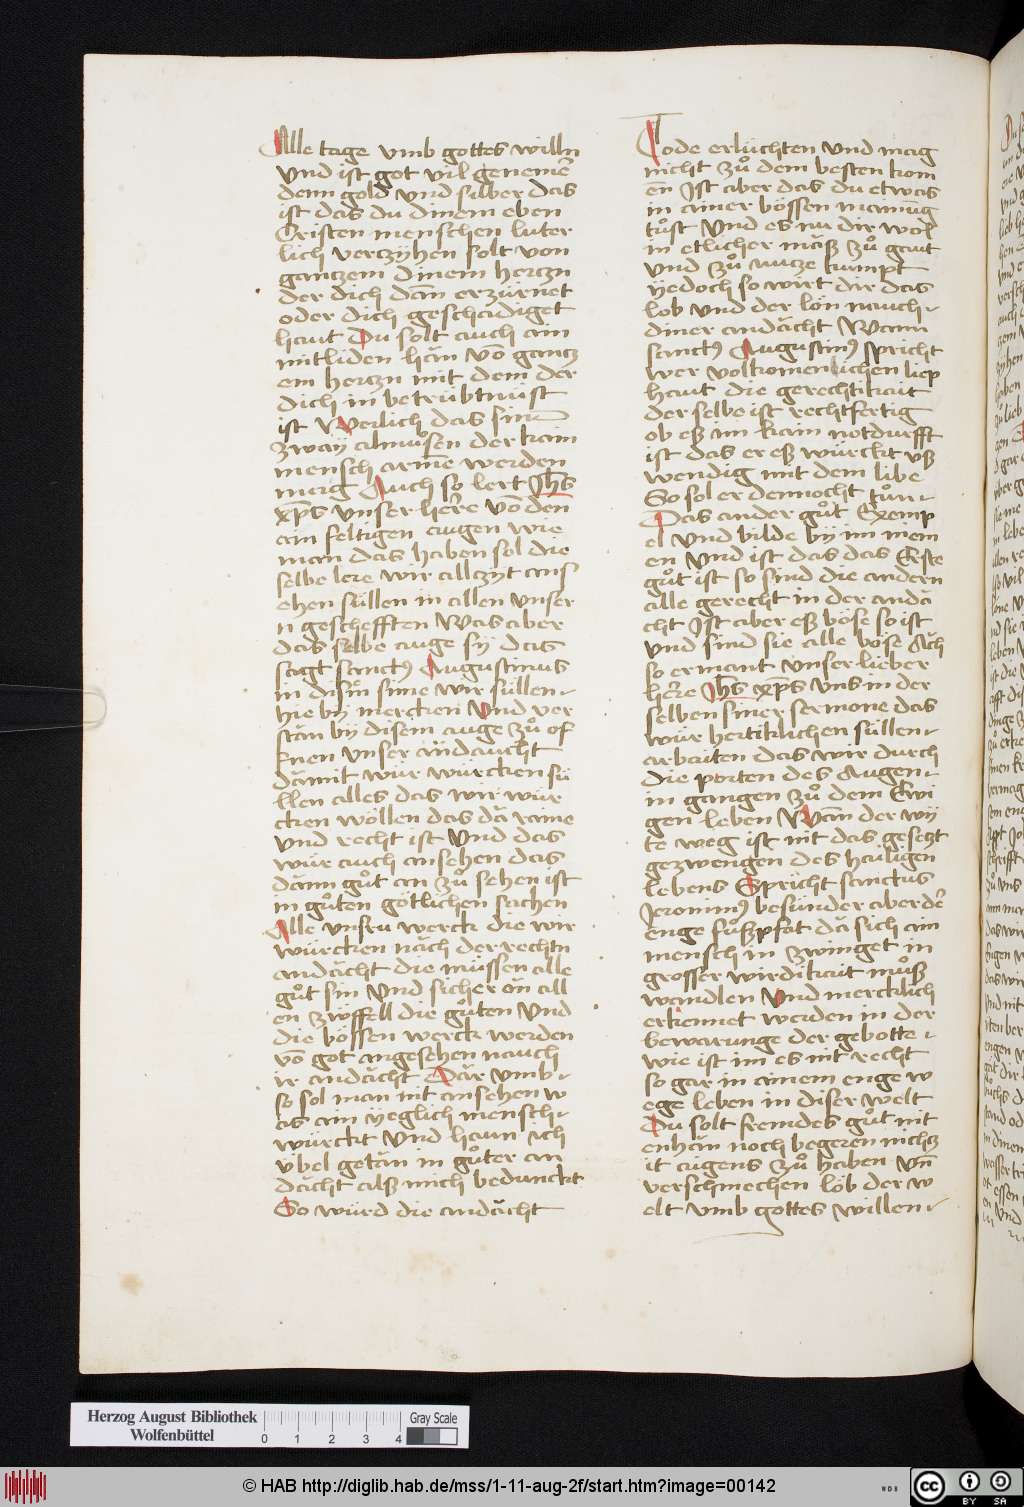 Alle tage vmb gottes willn
vnd ist got vil genemer̄
denn gold vnd silber das
ist das du dinem eben
Cristen menschen luter
lich verzyhen solt von
ganczem dinem herczn
der dich dān erzürnet
oder dich geschadiget
haut Du solt auch ain
mitliden hān vō gancz
em herczn mit dem der
dich in betrübtnüst
ist Werlich das sind
zway almůsen der kain
mensch arme werden
mag Auch so lert Jh̄s
xp̄s vnser herre vō den
ain feltigen augen wie
man das haben sol die
selbe lere wir allczyt ans
ehen süllen in allen vnser
n geschefften Was aber
das selbe auge sy das
sagt sanctꝰ Augustinus
in disim sinne wir süllen
hie by mercken Vnd ver
stān by disem auge zů of
fnen vnser andaucht
dāmit wür würcken sü
llen alles das wir wür
cken wöllen das dā raine
vnd recht ist Vnd das
wür auch ansehen das
dānn gůt an zů sehen ist
in gůten götlichen sachen
Alle vnsru werck die wir
würcken nāch der rechtn
andācht die müssen alle
gůt sin Vnd sicher ōn all
en zwiffell die gůten Vnd
die bössen werck werden
vō got angesehen nauch
ir andācht Dār vmb
so sol man nit ansehen w
as ain yeglich mensch
würckt Vnd haun ich
übel getān in gůter an
dācht alß mich bedunckt
So würd die andācht
Tode erlüchten vnd mag
nicht zů dem besten kom
en Ist aber das du etwas
in ainer bössen mainūg
tůst Vnd es nu dir wol
in etlicher māß zů gaut
vnd zů nucze kumpt
yedoch so wirt dir das
lob vnd der lōn nauch
diner andācht Wann
sanctꝰ Augustinꝰ spricht
wer volkomenlichen liep
haut die gerechtikait
der selbe ist rechtfertig
ob eß im kain notdurfft
ist das er eß würckt vß
wendig mit dem libe
So sol er dennocht tůn
Das ander gůt Exemp
el vnd bilde by im niem
en Vnd ist das das Erste
gůt ist so sind die andern
alle gerecht in der andā
cht Ist aber eß böse so ist
vnd sind sie alle böse Ach
so ermant vnser lieber
herre Jh̄s xp̄s vns in der
selben siner sermone das
wür heitiklichen süllen
arbaiten das wir durch
die porten des Augen
in gangen zů dem Ewi
gen leben Wann der wy
te weg ist nit das gesetzt
gezwengen des hailigen
lebens Spricht sanctus
Jeronimꝰ besünder aber der̄
enge fůßpfat dā sich ain
mensch in zwinget in
grosser wirdikait můß
wandlen Vnd mercklich
erkennet werden in der
bewarunge der gebotte
wie ist im es nit recht
so gar in ainem enge w
ege leben in diser welt
Du solt fremdes gůt nit
enhān noch begeren nichcz
it aigens zů haben vn̄
verschmechen lob der w
elt vmb gottes willen
Herzog August Bibliothek
Wolfenbüttel
0 1 2 3 4
Gray Scale
© HAB http://diglib.hab.de/mss/1-11-aug-2f/start.htm?image=00142
WDB
CC BY SA